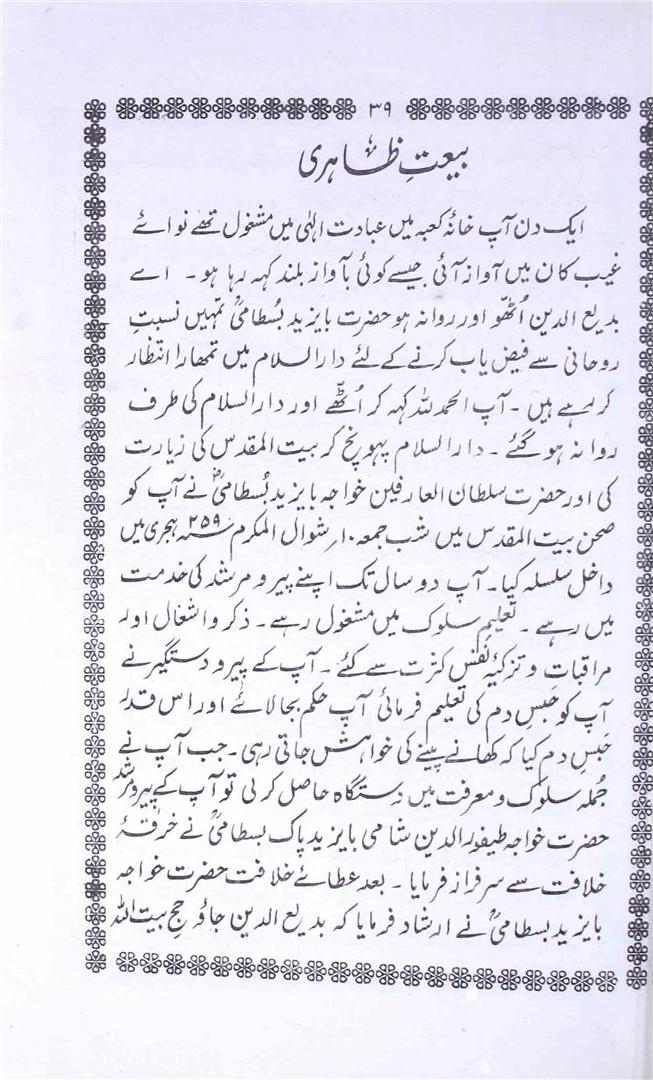 ۳۹
بیعتِ ظاہری
ایک دن آپ خانۂ کعبہ میں عبادت الہٰی میں مشغول تھے نوائے
غیب کان میں آواز آئی جیسے کوئی بآواز بلند کہہ رہا ہو ۔ اے
بدیع الدین اُٹھّو اور روانہ ہو حضرت بایزید بُسطامیؒ تمہیں نسبتِ
روحانی سے فیض یاب کرنے کے لئے دارالسلام میں تمھارا انتظار
کر رہے ہیں ۔ آپ الحمدللہ کہہ کر اُٹھّے اور دارالسلام کی طرف
روانہ ہو گئے ۔ دارالسلام پہونچ کر بیت المقدس کی زیارت
کی اور حضرت سلطان العارفین خواجہ بایزید بُسطامیؒ نے آپ کو
صحن بیت المقدس میں شب جمعہ ۱۰ر شوال المکرم ۲۵۹؁ ہجری میں
داخل سلسلہ کیا۔ آپ دو سال تک اپنے پیر و مرشد کی خدمت
میں رہے ۔ تعلیمِ سلوک میں مشغول رہے ۔ ذکر و اشغال اور
مراقبات و تزکیۂ نفس کثرت سے کئے ۔ آپ کے پیر و دستگیر نے
آپ کو حَبسِ دم کی تعلیم فرمائی آپ حکم بجا لائے اور اس قدر
حَبسِ دم کیا کہ کھانے پینے کی خواہش جاتی رہی ۔ جب آپ نے
جُملہ سلوک و معرفت میں دستگاہ حاصل کر لی تو آپ کے پیر و مرشد
حضرت خواجہ طیفور الدین شامی بایزید پاک بسطامیؒ نے خرقۂ
خلافت سے سرفراز فرمایا ۔ بعد عطائے خلافت حضرت خواجہ
بایزید بسطامیؒ نے ارشاد فرمایا کہ بدیع الدین جاؤ حجِ بیت اللہ